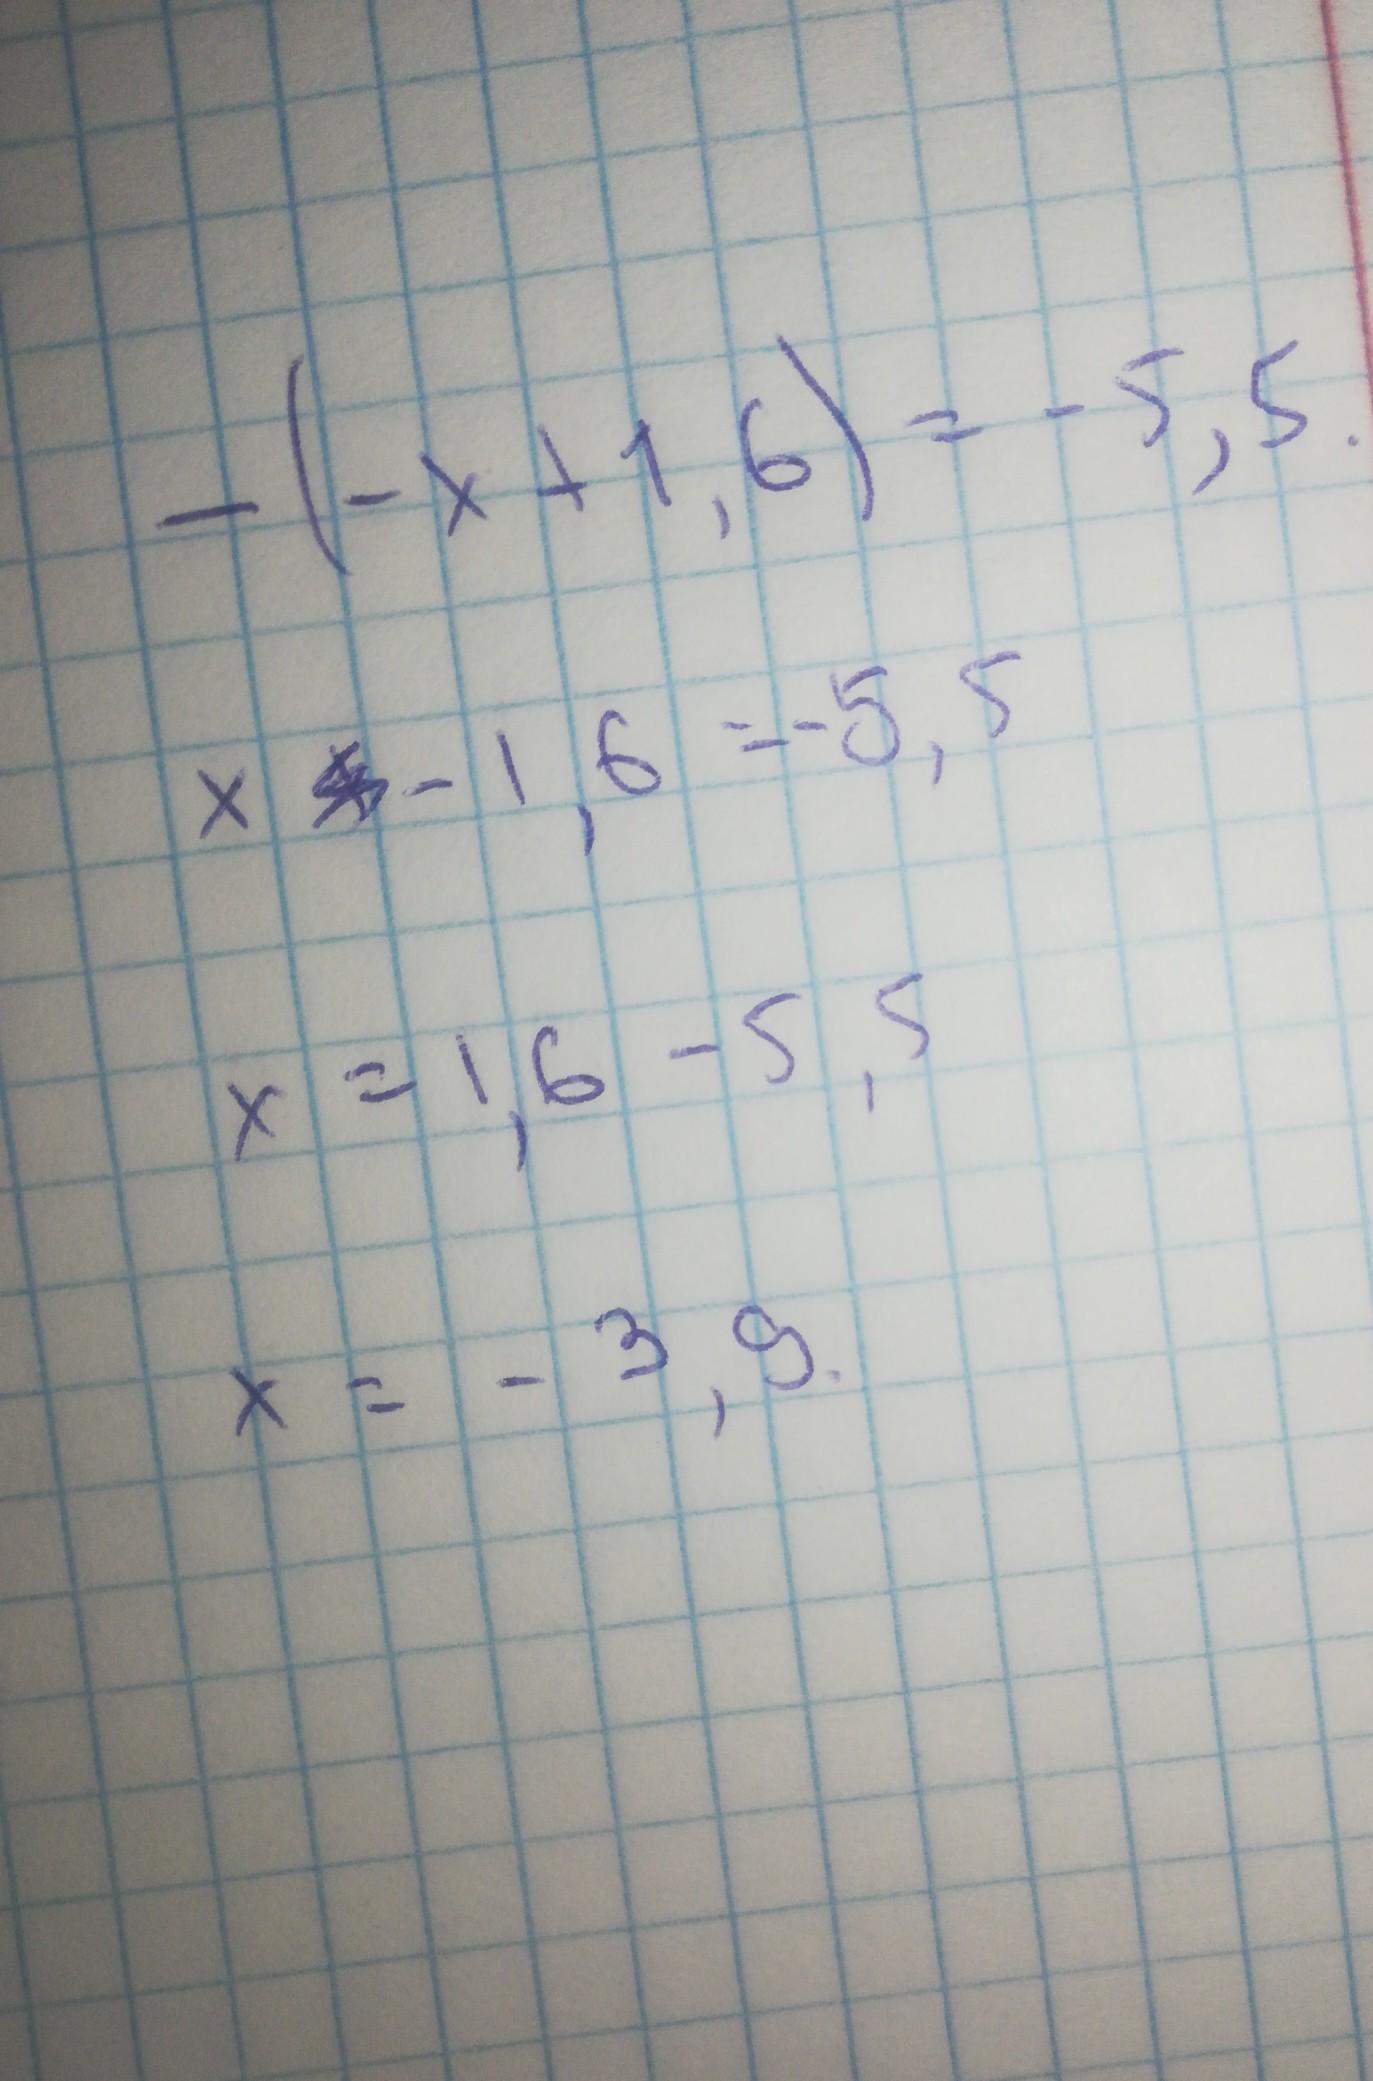 -(-x+1,6)=-5,5.
x -1,6=-5,5
x=1,6-5,5
x=-3,9.